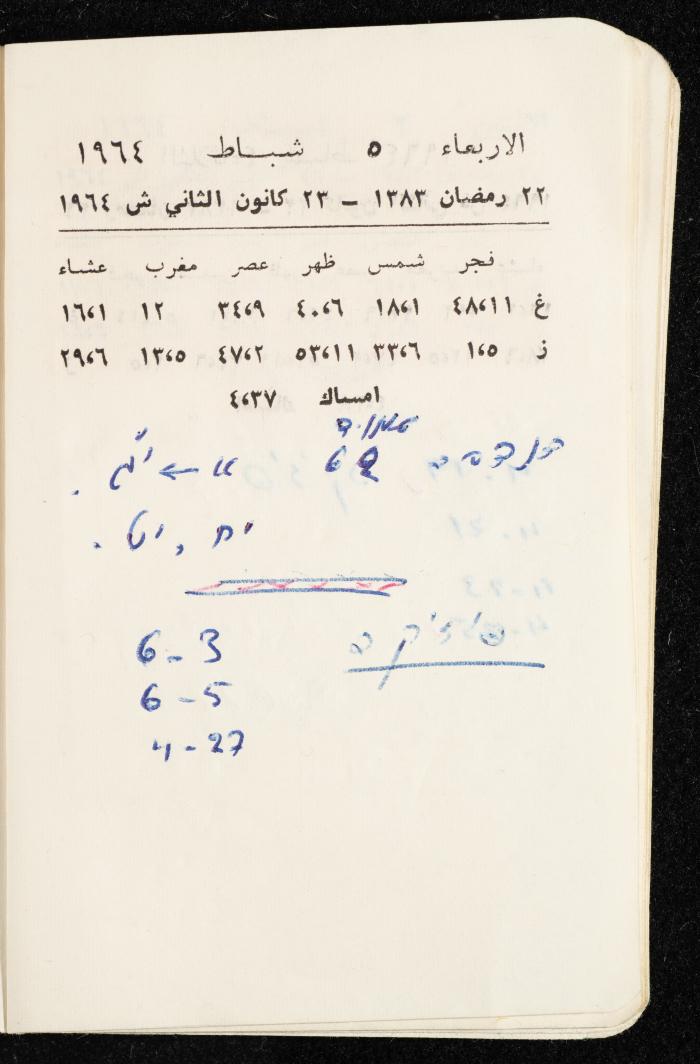 الاربعاء ٥ شبـاط ١٩٦٤
٢٢ رمضان ١٣٨٣ – ٢٣ كانون الثاني ش ١٩٦٤
فجر شمس ظهر عصر مغرب عشاء
غ ٤٨،١١ ١٨،١ ٤٠،٦ ٣٤،٩ ١٢ ١٦،١
ز ١،٥ ٣٣،٦ ٥٣،١١ ٤٧،٢ ١٣،٥ ٢٩،٦
امساك ٤،٣٧
א ← י״ג .
יח , יט .
פיזיקה
6 - 3
6 - 5
4 - 27